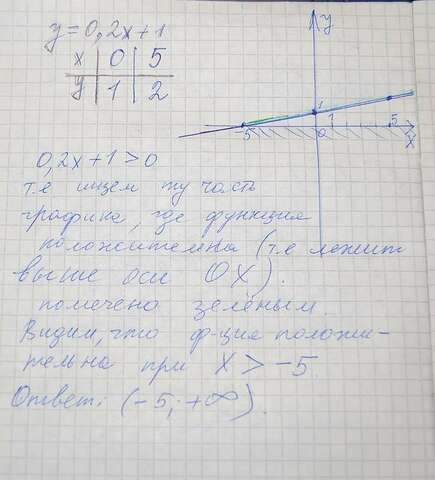 y=0,2x+1
x | 0 | 5
y | 1 | 2
y
1
5 0 1 5 x
0,2x+1>0
т.е ищем ту часть
графика, где функция
положительна (т.е лежит
выше оси OX).
помечено зелёным.
Видим, что ф-ция положи-
тельна при x > -5
Ответ: (-5; +∞).